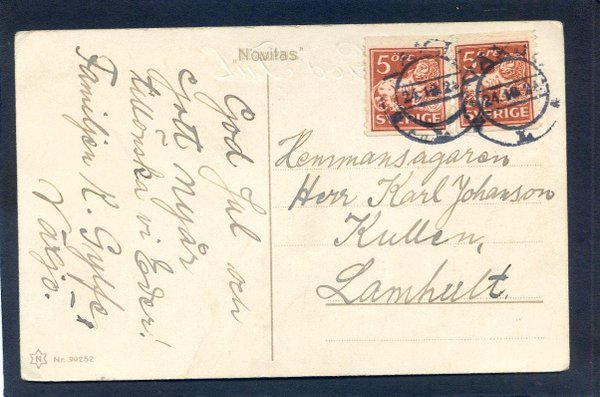 "Novitas"
God Jul och
Gott Nyår
tillönska vi Eder!
Familjen K. Gylfe
5 öre 5 öre
SVERIGE SVERIGE
Hemmansägaren
Herr Karl Johanson
Kullen,
Lamhult.
N Nr. 90252